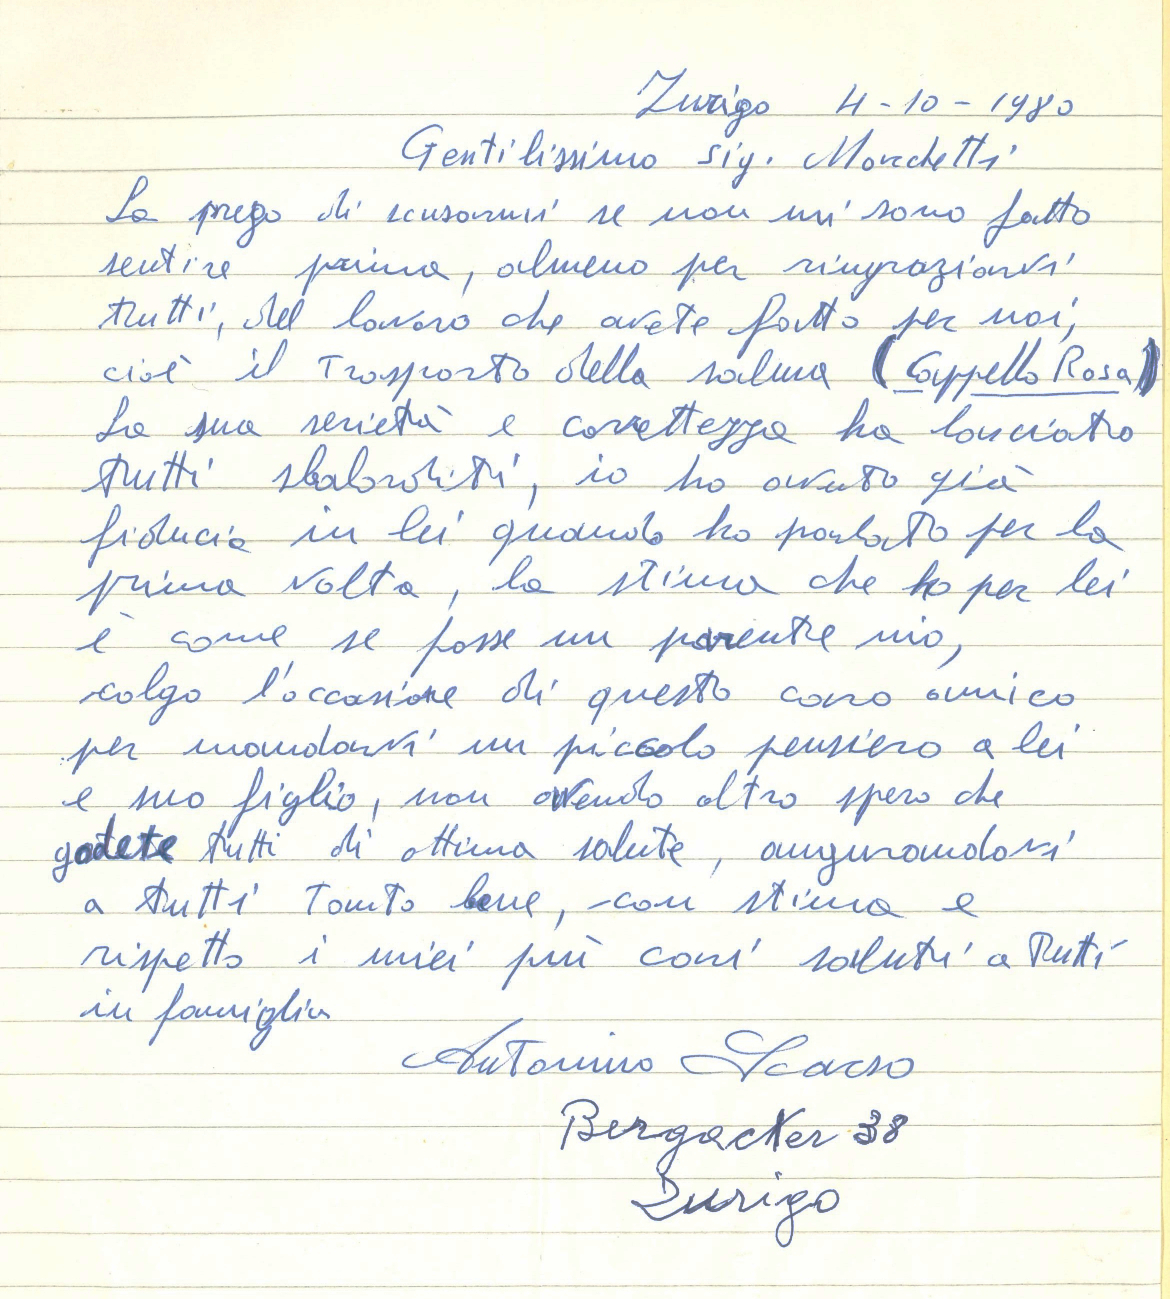 Zurigo 4-10-1980
Gentilissimo Sig. Marchetti
La prego di scusarmi se non mi sono fatto
sentire prima, almeno per ringraziarvi
tutti, del lavoro che avete fatto per noi,
cioè il Trasporto della salma (Cappello Rosa)
La sua serietà e corettezza ha lasciato
tutti sbalorditi, io ho avuto già
fiducia in lei quando ho parlato per la
prima volta, la stima che ho per lei
è come se fosse un parente mio,
colgo l'occasione di questo caro amico
per mandarvi un piccolo pensiero a lei
e suo figlio, non avendo altro spero che
godete tutti di ottima salute, augurandovi
a tutti Tanto bene, con stima e
rispetto i miei più cari saluti a Tutti
in famiglia
Antonino Scarso
Bergacker 38
Zurigo